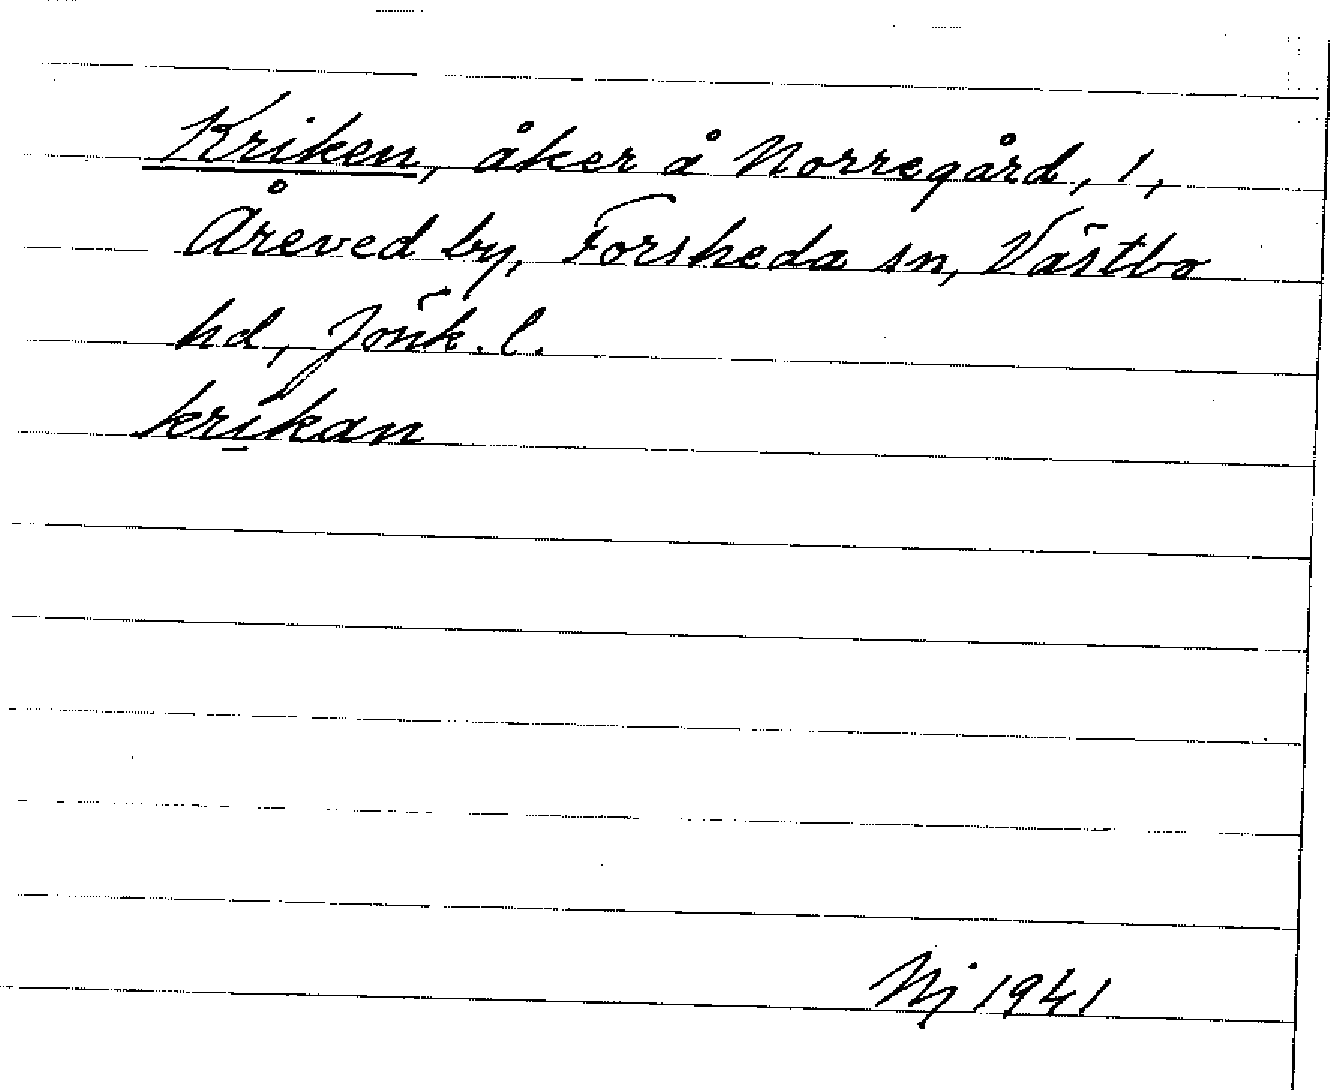 Kriken, åker å Norregård, 1,
Åreved by, Forsheda sn, Västbo
hd, Jönk. l.
krikan
Nj 1941